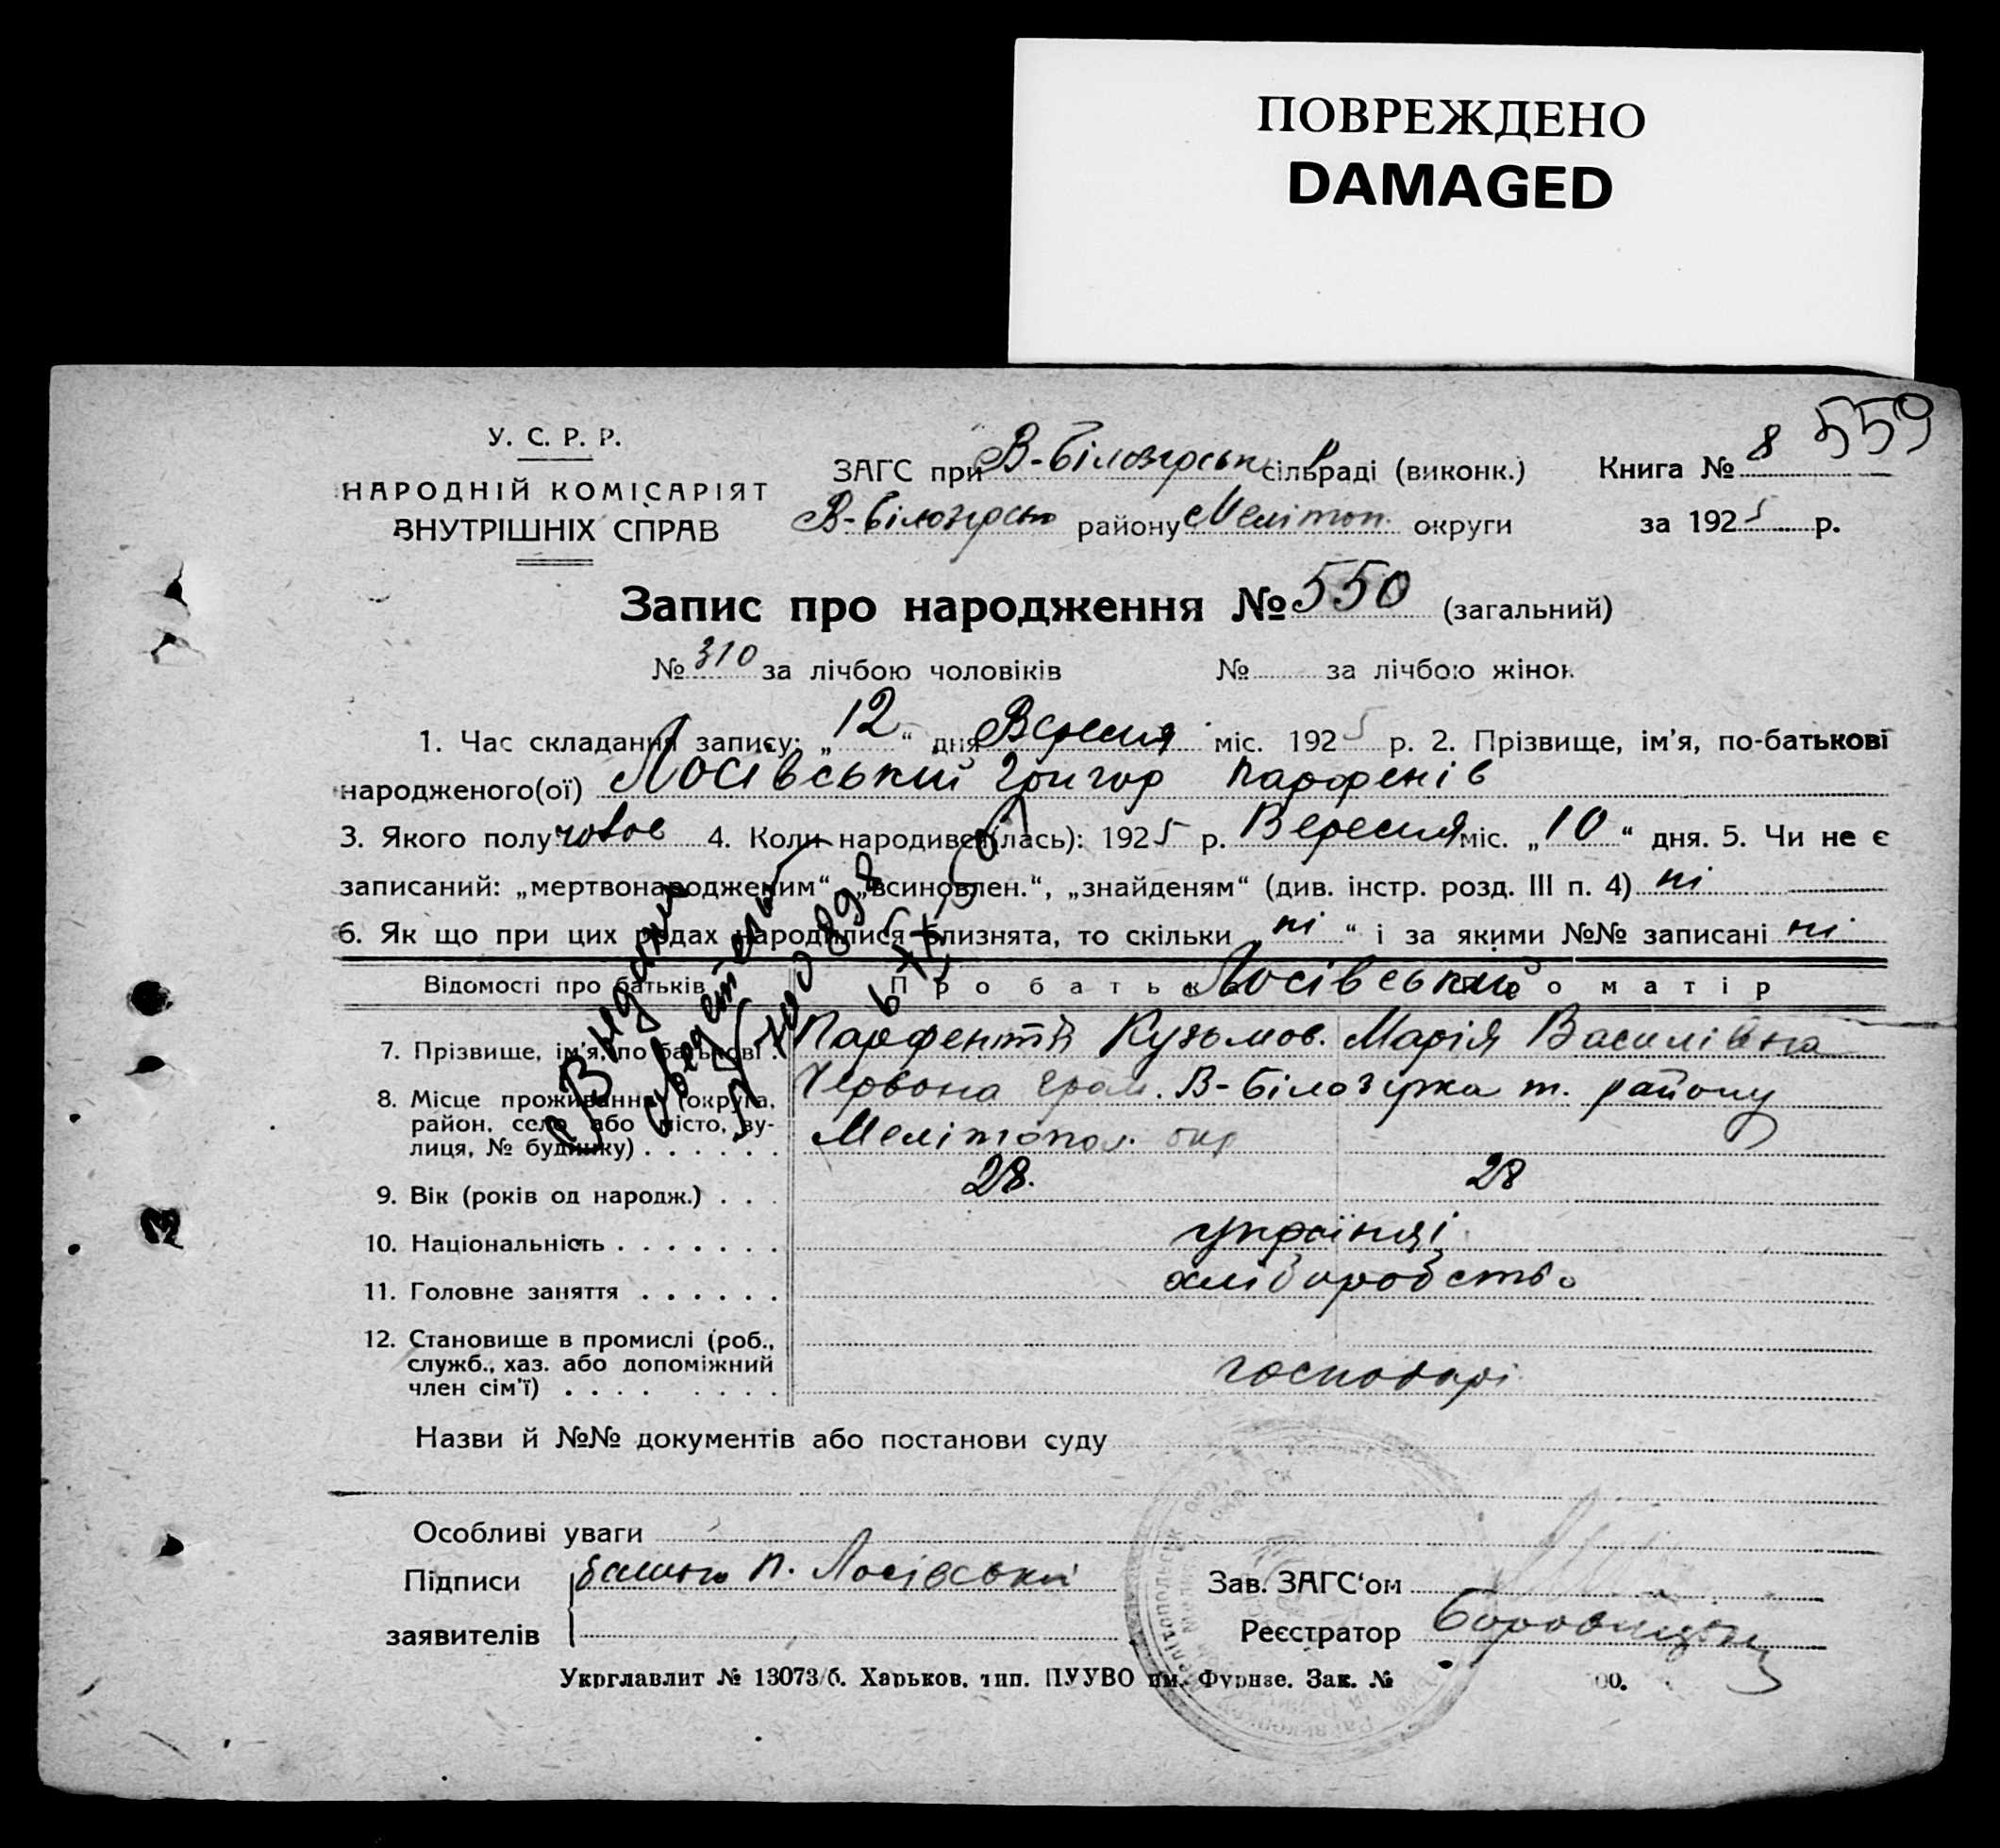 ПОВРЕЖДЕНО
DAMAGED
559
У. С. Р. Р.
НАРОДНІЙ КОМІСАРІЯТ
ВНУТРІШНІХ СПРАВ
ЗАГС при В-Білозерськ сільраді (виконк.) Книга № 8
В-Білозерськ району Мелітоп. округи за 1925 р.
Запис про народження № 550 (загальний)
№ 310 за лічбою чоловіків № за лічбою жінок
1. Час складання запису: „12“ дня Вересня міс. 1925 р. 2. Прізвище, ім'я, по-батькові
народженого(ої) Лосівський Григор Парфенів
3. Якого полу чолов 4. Коли народився(лась): 1925 р. Вересня міс. „10“ дня. 5. Чи не є
записаний: „мертвонародженим“ „всиновлен.“, „знайденям“ (див. інстр. розд. III п. 4) ні
6. Як що при цих родах народилися близнята, то скільки „ні“ і за якими №№ записані ні
Відомості про батьків Про батька Про матір
Лосівський
7. Прізвище, ім'я, по батькові . Парфентій Кузьмов. Марія Василівна
8. Місце проживання (округа, Червона гром. В-Білозірка т. району
район, село або місто, ву- Мелітопол. окр
лиця, № будинку) . . . . . .
9. Вік (років од народж.) . . . 28. 28
10. Національність . . . . . . . українці
11. Головне заняття . . . . . . хліборобство
12. Становище в промислі (роб.,
служб., хаз. або допоміжний господарі
член сім'ї) . . . . . . . .
Назви й №№ документів або постанови суду
Особливі уваги
Підписи батько П. Лосівський Зав. ЗАГС'ом
заявителів Реєстратор
Укрглавлит № 13073/б. Харьков, тип. ПУУВО им. Фрунзе. Зак. № 00.